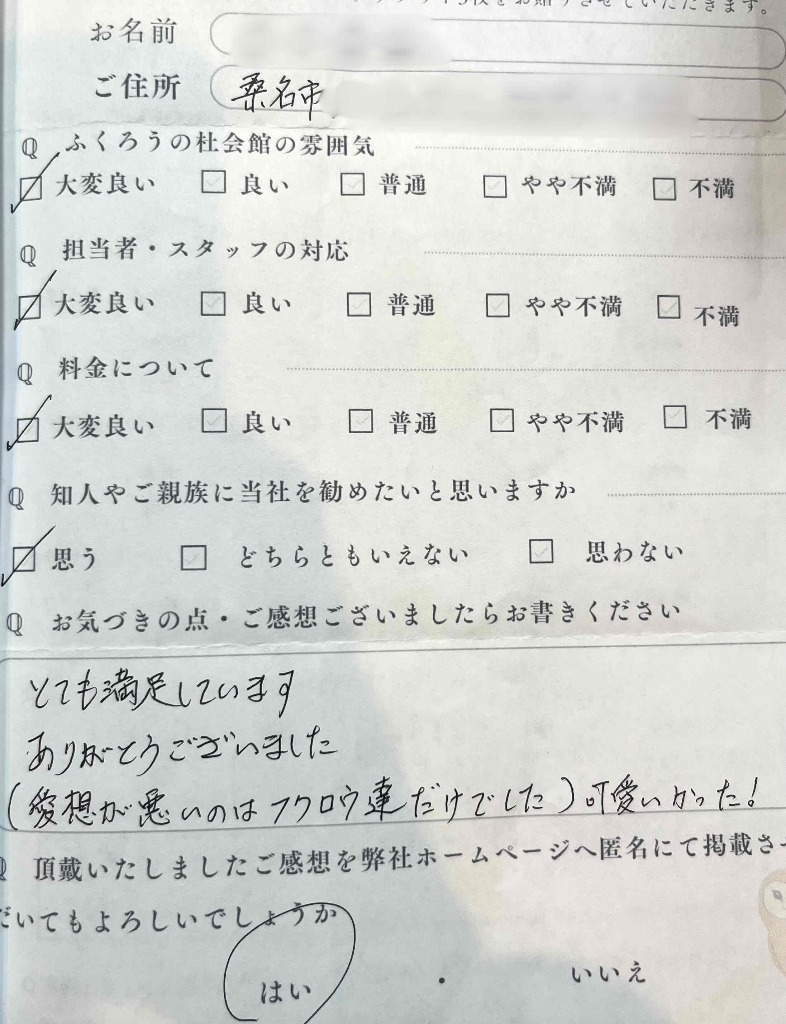 お名前
ご住所 桑名市
Q ふくろうの杜会館の雰囲気
大変良い 良い 普通 やや不満 不満
Q 担当者・スタッフの対応
大変良い 良い 普通 やや不満 不満
Q 料金について
大変良い 良い 普通 やや不満 不満
Q 知人やご親族に当社を勧めたいと思いますか
思う どちらともいえない 思わない
Q お気づきの点・ご感想ございましたらお書きください
とても満足しています
ありがとうございました
(愛想が悪いのはフクロウ達だけでした)可愛いかった!
Q 頂戴いたしましたご感想を弊社ホームページへ匿名にて掲載さ
だいてもよろしいでしょうか
はい ・ いいえ